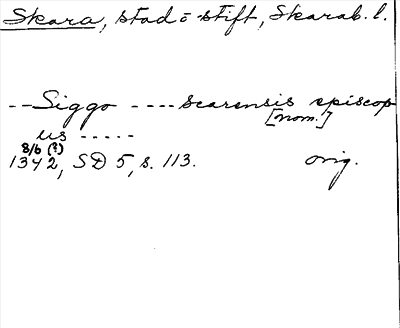 Skara, stad o stift, Skarab. l.
-- Siggo ---- scarensis episcop
[nom.]
us -----
8/6 (?)
1342, SD 5, s. 113. orig.